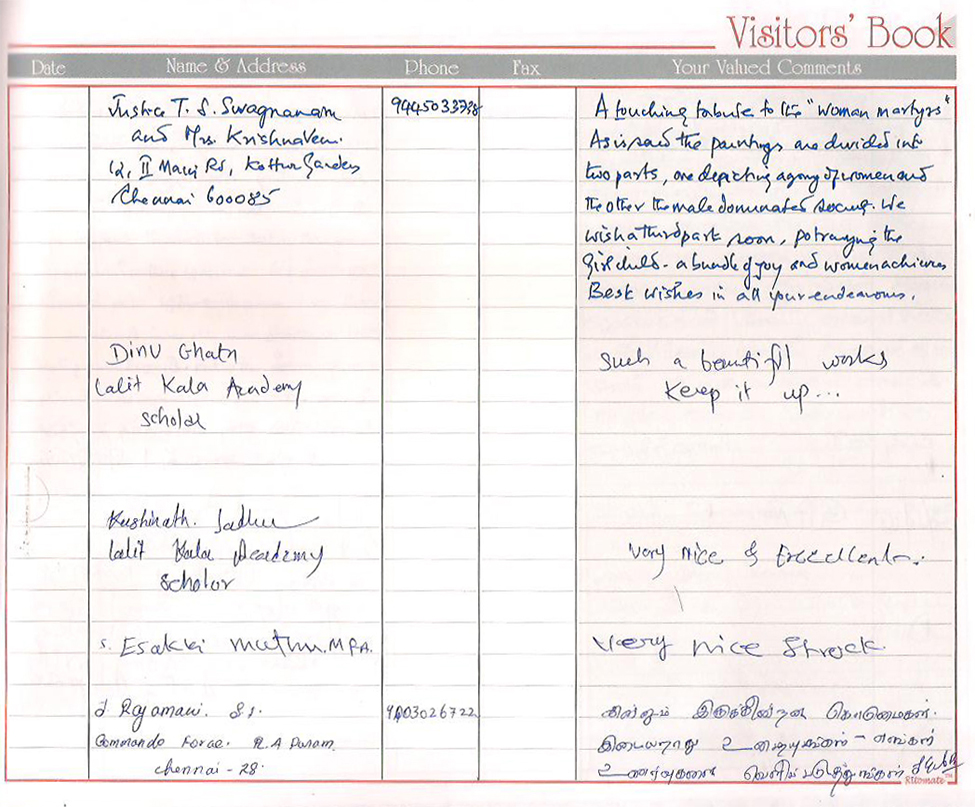 Visitors' Book
Date Name & Address Phone Fax Your Valued Comments
Justice T. S. Sivagnanam 9445033738 A touching tribute to the "woman martyrs"
and Mrs. Krishnaveni. As is said the paintings are divided into
12, II Main Rd, Kottur Gardens two parts, one depicting agony of women and
Chennai 600085 the other the male dominated society. We
wish a third part soon, potraying the
Girl child - a bundle of joy and women achievers
Best wishes in all your endeavours.
Dinu Ghatn Such a beautifl works
Lalit Kala Academy Keep it up...
Scholar
Kashinath. Sadhu
Lalit Kala Academy Very Nice & Excellent..
Scholor
S. Esakki Muthu. M.F.A. Very nice Strock
J Rajamani. S.I. 9003026722 இன்னும் இருக்கின்றன கொடுமைகள்.
Commando Force. R.A Puram. இடையறாது உழையுங்கள் - எங்கள்
Chennai - 28. உணர்வுகளை வெளிப்படுத்துங்கள்